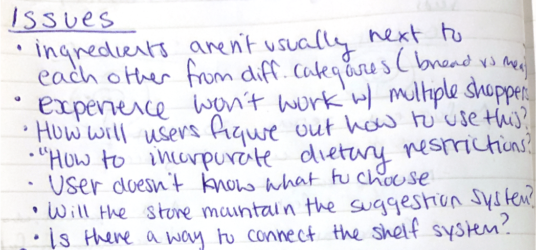 Issues
• ingredients aren't usually next to
each other from diff. categories (bread vs meat)
• experience won't work w/ multiple shoppers
• How will users figure out how to use this?
• "How to incorporate dietary restrictions?
• User doesn't know what to choose
• Will the store maintain the suggestion system?
• is there a way to connect the shelf system?